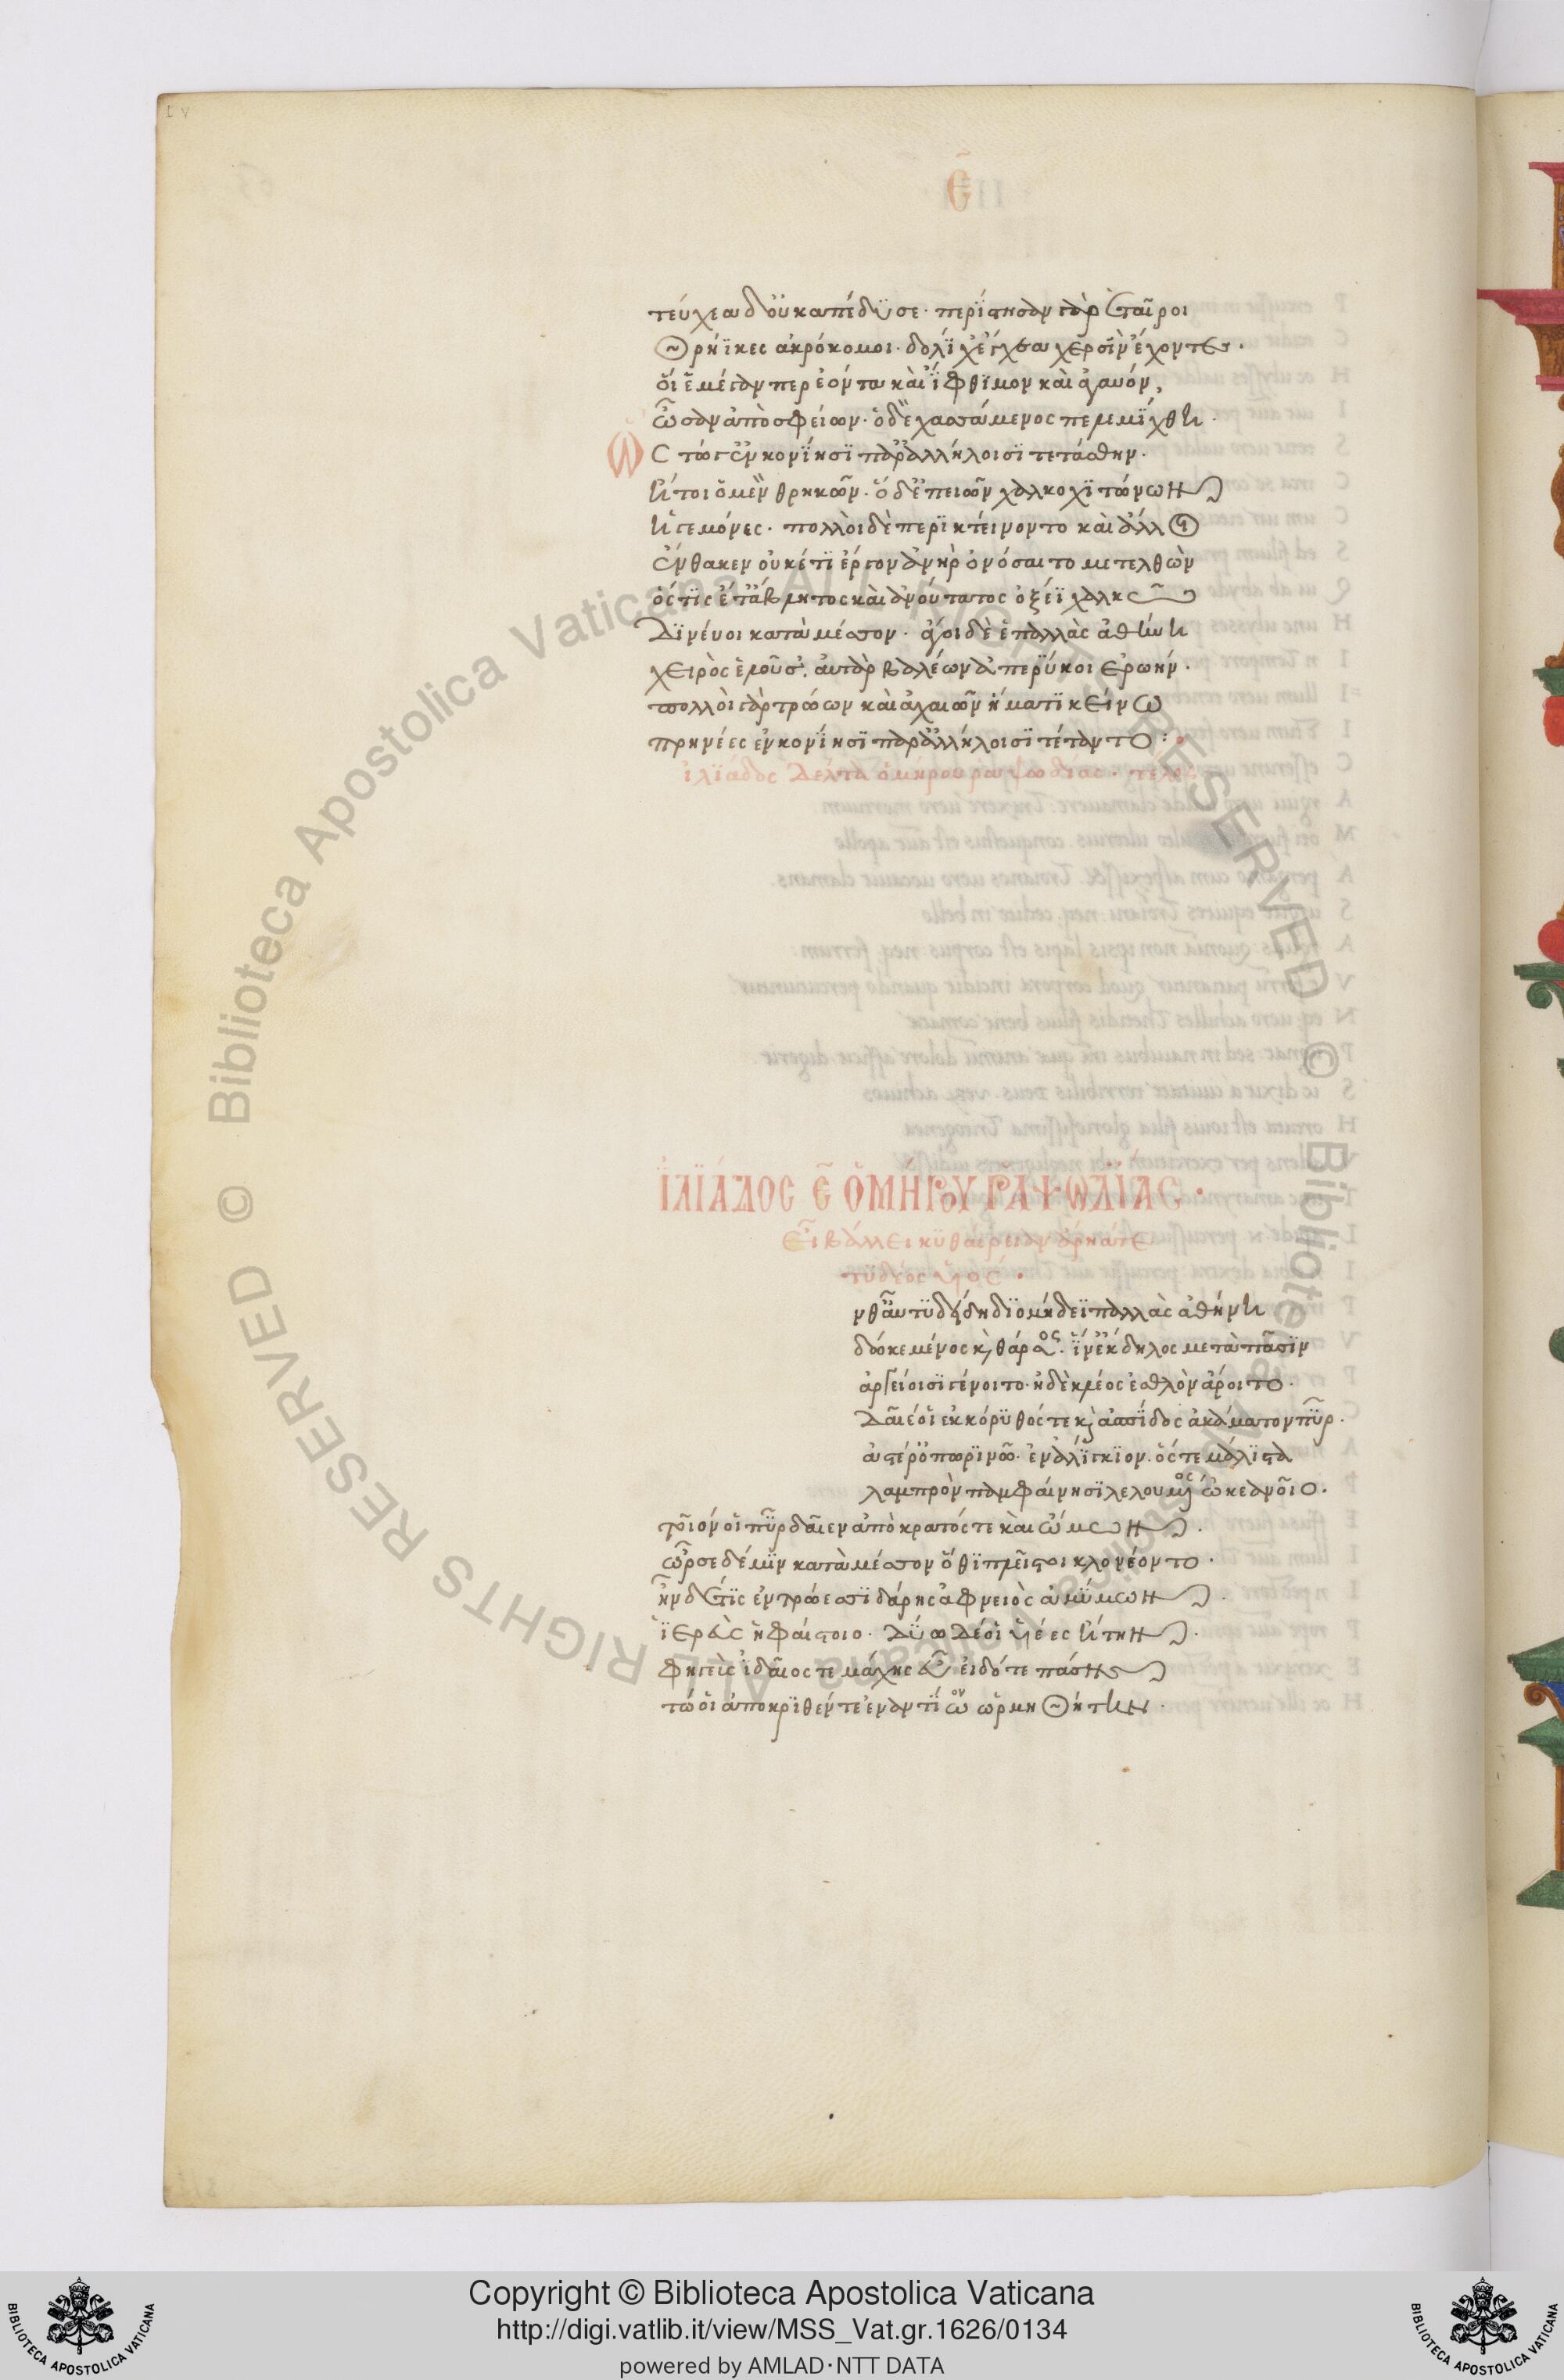 Ε̄
τεύχεα δ' οὐκ ἀπέδϋσε· περίστησαν γὰρ ἑταῖροι
Θρήϊκες ἀκρόκομοι· δολίχ' ἔγχεα χερσῒν ἔχοντες·
οἵ ἑ μέγαν περ ἐόντα καὶ ἴφθϊμον καὶ ἀγαυόν,
ὦσαν ἀπὸ σφείων· ὁ δὲ χασσάμενος πελεμίχθη·
Ὣς τώγ' ἐν κονίησϊ παρ' ἀλλήλοισϊ τετάσθην·
ἤτοι ὁ μὲν θρηκῶν· ὁ δ' ἐπειῶν χαλκοχϊτώνων
ἡγεμόνες· πολλοὶ δὲ περϊκτείνοντο καὶ ἄλλοι
ἔνθα κεν οὐκέτϊ ἔργον ἀνὴρ ὀνόσαιτο μετελθὼν
ὅς τϊς ἔτ' ἄβλητος καὶ ἀνούτατος ὀξέϊ χαλκῶ
Δϊνέυοι κατὰ μέσσον· ἄγοι δὲ ἑ παλλὰς ἀθήνη
χειρὸς ἑλοῦσ'. αὐτὰρ βαλέων ἀπερΰκοι ἐρωήν·
πολλοὶ γὰρ τρώων καὶ ἀχαιῶν ἤματϊ κείνω
πρηνέες ἐν κονίησϊ παρ' ἀλλήλοισϊ τέταντο :
ἰλϊάδος Δέλτα ὁμήρου ραψωδίας· τέλος
ἸΛΪΆΔΟΣ Ε̄ ὉΜΉΡΟΥ ῬΑΨΩΔΪΆΣ·
Εἶ βάλλει κϋθαίρειαν ἄρηάτε
τϋδέος ϋἱός·
νθ' αὖ τϋδείδη δϊομήδεϊ παλλὰς ἀθήνη
δῶκε μένος κ θάρσος· ἵν' ἔκδηλος μετὰ πᾶσϊν
ἀργείοισϊ γένοιτο· ἠδὲ κλέος ἐσθλὸν ἄροιτο·
Δαῖέ οἱ ἐκ κόρϋθός τε κ ἀσπίδος ἀκάματον πῦρ·
ἀστέρ' ὀπωρϊνῶ· ἐναλίγκϊον. ὅς τε μάλϊστα
λαμπρὸν παμφαίνησϊ λελουμένος ὠκεανοῖο·
τοῖόν οἱ πῦρ δαῖεν ἀπὸ κρατός τε καὶ ὤμων·
ὦρσε δέ μϊν κατὰ μέσσον ὅθϊ πλεῖστοι κλονέοντο·
ἦν δέ τϊς ἐν τρώεσσϊ δάρης ἀφνειὸς ἀμΰμων·
ἱ̈ερεὺς ἡφαίστοιο· Δΰω Δέ οἱ ϋἱέες ἤστην·
φηγεὺς ἰδαῖος τε μάχης εὖ εἰδότε πάσης
τώ οἱ ἀποκρϊθέντε ἐναντίον ὡρμηθήτην·
Copyright © Biblioteca Apostolica Vaticana
http://digi.vatlib.it/view/MSS_Vat.gr.1626/0134
powered by AMLAD·NTT DATA